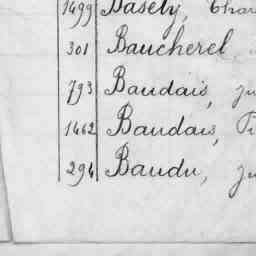 1499 Basely, Char
301 Baucherel
793 Baudais, ju
1462 Baudais,
294 Baudu, ju